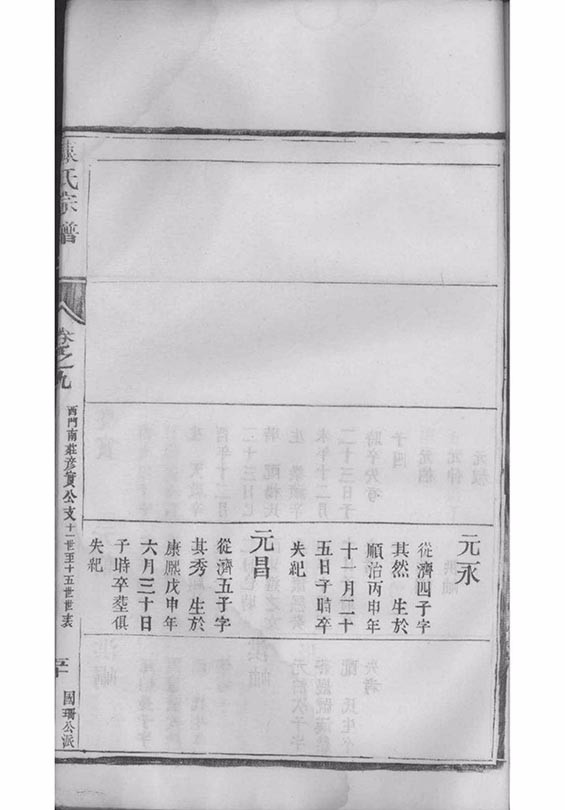 元永
從濟四子字
其然 生於
順治丙申年
十一月二十
五日子時卒
失紀
元昌
從濟五子字
其秀 生於
康熙戊申年
六月三十日
子時卒塟俱
失紀
氏宗譜
卷之九
西門南莊彦實公支十一世至十五世世表
國珊公派